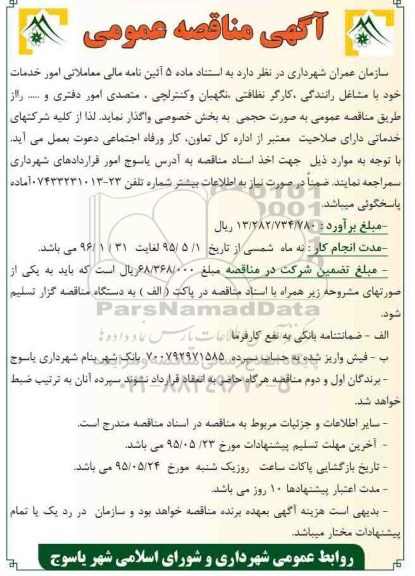 آگهی مناقصه عمومی
سازمان عمران شهرداری در نظر دارد به استناد ماده ۵ آئین نامه مالی معاملاتی امور خدمات
خود با مشاغل رانندگی ،کارگر نظافتی ،نگهبان وکنترلچی ، متصدی امور دفتری و ..... رااز
طریق مناقصه عمومی به صورت حجمی به بخش خصوصی واگذار نماید. لذا از کلیه شرکتهای
خدماتی دارای صلاحیت معتبر از اداره کل تعاون، کار ورفاه اجتماعی دعوت بعمل می آید.
با توجه به موارد ذیل جهت اخذ اسناد مناقصه به آدرس یاسوج امور قراردادهای شهرداری
سمراجعه نمایند. ضمناً در صورت نیاز به اطلاعات بیشتر شماره تلفن ۲۳-۰۷۴۳۳۲۳۱۰۱۳آماده
پاسخگوئی میباشد.
-مبلغ برآورد : ۱۳/۲۸۲/۷۳۴/۷۸۰ ریال
-مدت انجام کار : نه ماه شمسی از تاریخ ۹۵/۵/۱ لغایت ۹۶/۱/۳۱ می باشد.
- مبلغ تضمین شرکت در مناقصه مبلغ ۶۸/۳۶۸/۰۰۰ریال است که باید به یکی از
صورتهای مشروحه زیر همراه با اسناد مناقصه در پاکت ( الف ) به دستگاه مناقصه گزار تسلیم
شود.
الف - ضمانتنامه بانکی به نفع کارفرما
ب - فیش واریز شده به حساب سپرده ۷۰۰۷۹۲۹۷۱۵۸۵ بانک شهر بنام شهرداری یاسوج
- برندگان اول و دوم مناقصه هرگاه حاضر به انعقاد قرارداد نشوند سپرده آنان به ترتیب ضبط
خواهد شد.
- سایر اطلاعات و جزئیات مربوط به مناقصه در اسناد مناقصه مندرج است.
- آخرین مهلت تسلیم پیشنهادات مورخ ۹۵/۰۵/۲۳ می باشد.
- تاریخ بازگشایی پاکات ساعت روزیک شنبه مورخ ۹۵/۰۵/۲۴ می باشد.
- مدت اعتبار پیشنهادها ۱۰ روز می باشد.
- بدیهی است هزینه آگهی بعهده برنده مناقصه خواهد بود و سازمان در رد یک یا تمام
پیشنهادات مختار میباشد.
روابط عمومی شهرداری و شورای اسلامی شهر یاسوج
ParsNamadData
۰۲۱-۸۸۳۴۹۶۷۰-۵